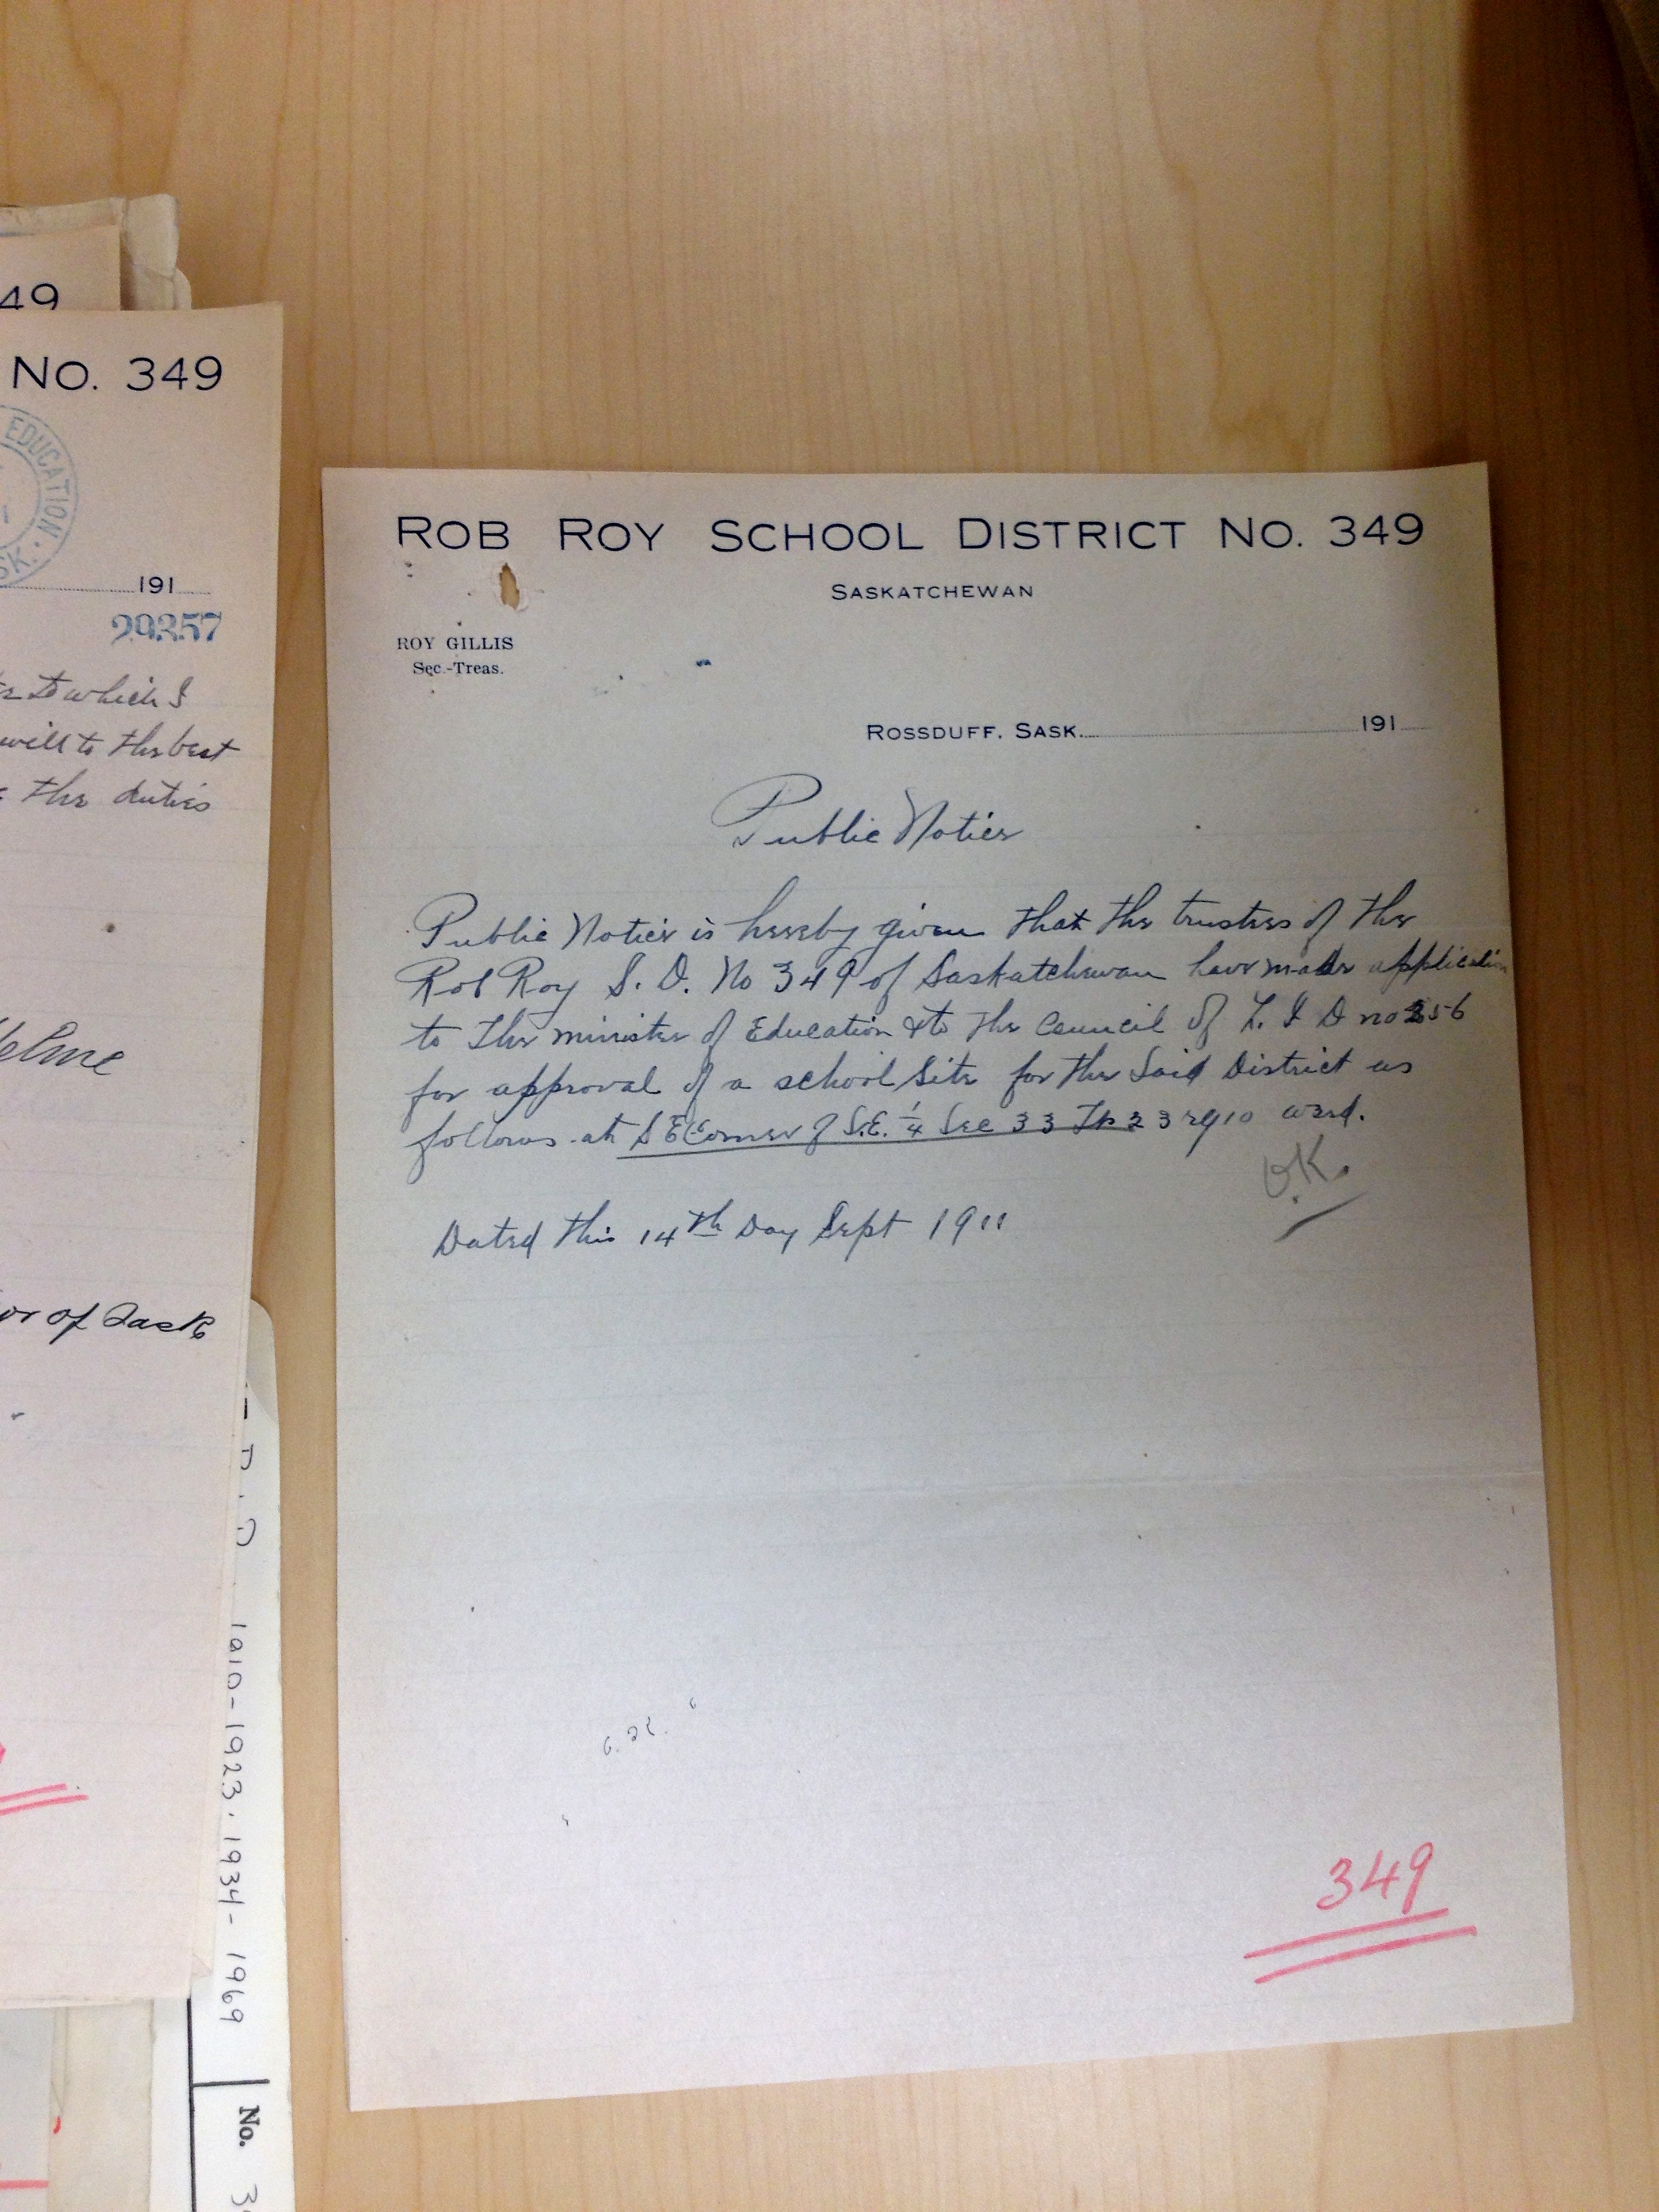 49
No. 349
EDUCATION
SK.
191
29357
to which I
will to the best
the duties
or of Sask
1910-1923, 1934-1969
No.
ROB ROY SCHOOL DISTRICT NO. 349
SASKATCHEWAN
ROY GILLIS
Sec.-Treas.
ROSSDUFF, SASK. 191
Public Notice
Public Notice is hereby given that the trustees of the
Rob Roy S. D. No 349 of Saskatchewan have made application
to the minister of Education & to the Council of L. I D no 256
for approval of a school site for the Said District as
follows at S E Corner of S.E. ¼ Sec 33 Tp 23 rg 10 w3rd.
O.K.
Dated this 14th Day Sept 1911
349